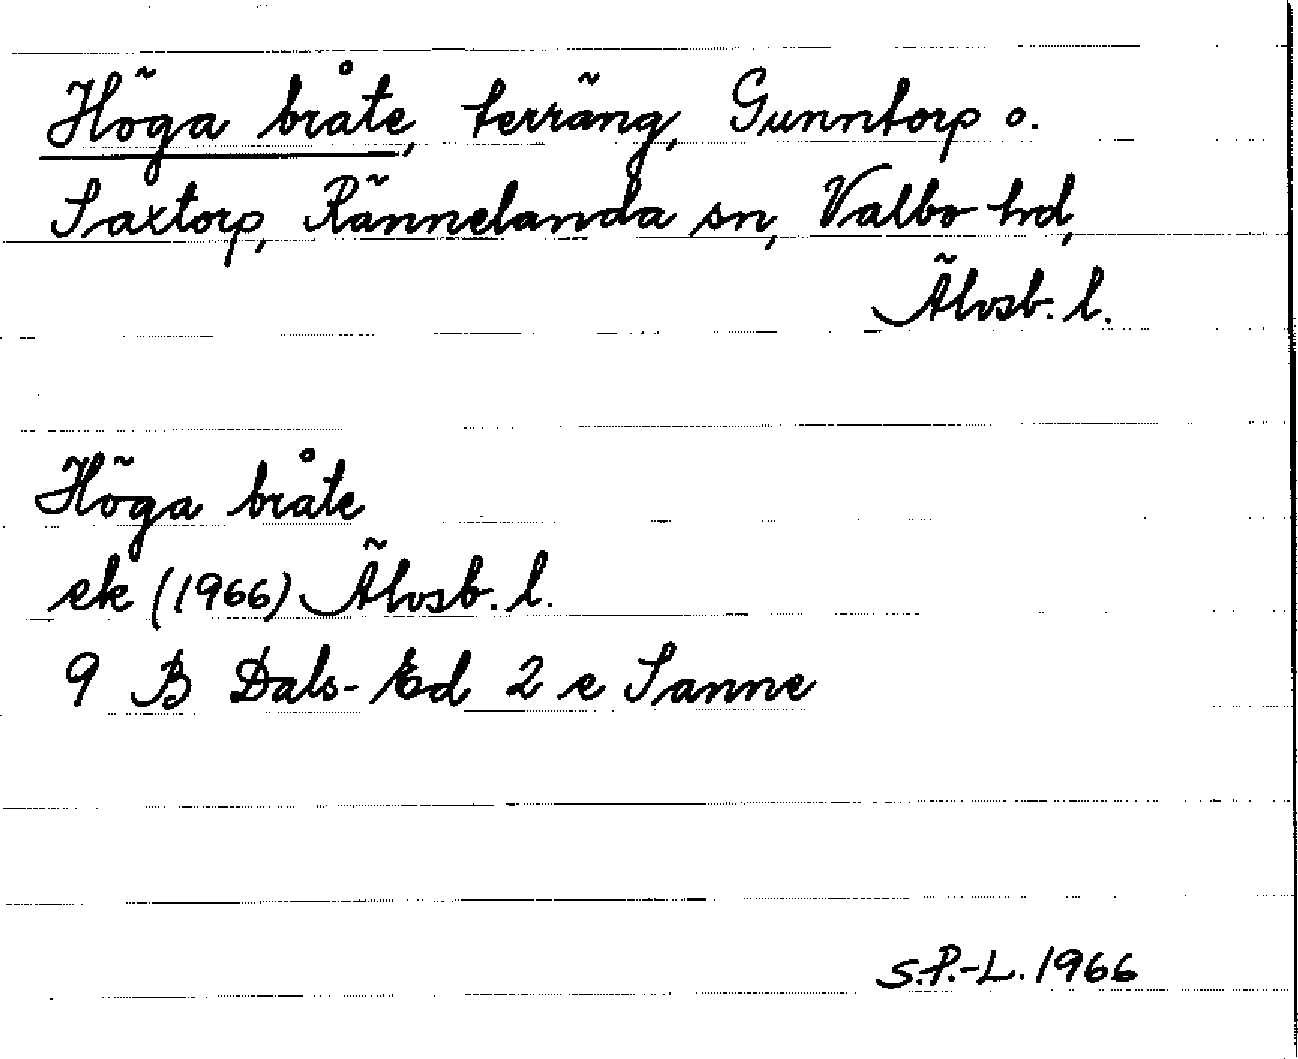 Höga bråte, terräng, Gunntorp o.
Saxtorp, Rännelanda sn, Valbo hd,
Älvsb. l.
Höga bråte
ek (1966) Älvsb. l.
9 B Dals-Ed 2 e Sanne
S.P.-L. 1966